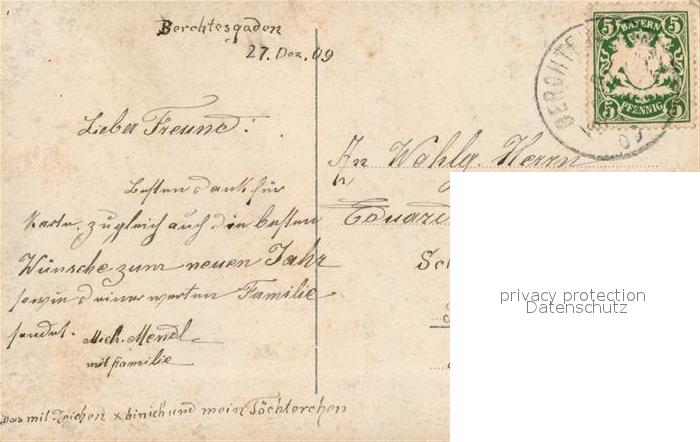 Berchtesgaden
27. Dez. 09
Lieber Freund!
Besten dank für
Karte, zugleich auch die besten
Wünsche zum neuen Jahr
sowie deiner werten Familie
sendet. Mich. Mendl
mit familie
Das mit Zeichen x bin ich und mein Töchterchen
5 BAYERN 5
5 PFENNIG 5
BERCHTE
09
An Wohlg. Herrn
Eduard
Sch
privacy protection
Datenschutz